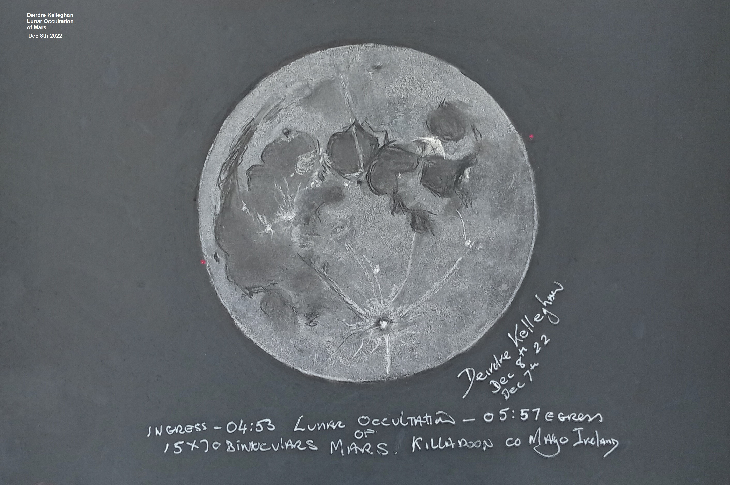 Deirdre Kelleghan
Lunar Occultation
of Mars
Dec 8th 2022
Deirdre Kelleghan
Dec 8th 22
Dec 7th
INGRESS - 04:53 LUNAR OCCULTATION - 05:57 EGRESS
OF
15X70 BINOCULARS MARS. KILLADOON CO MAYO IRELAND